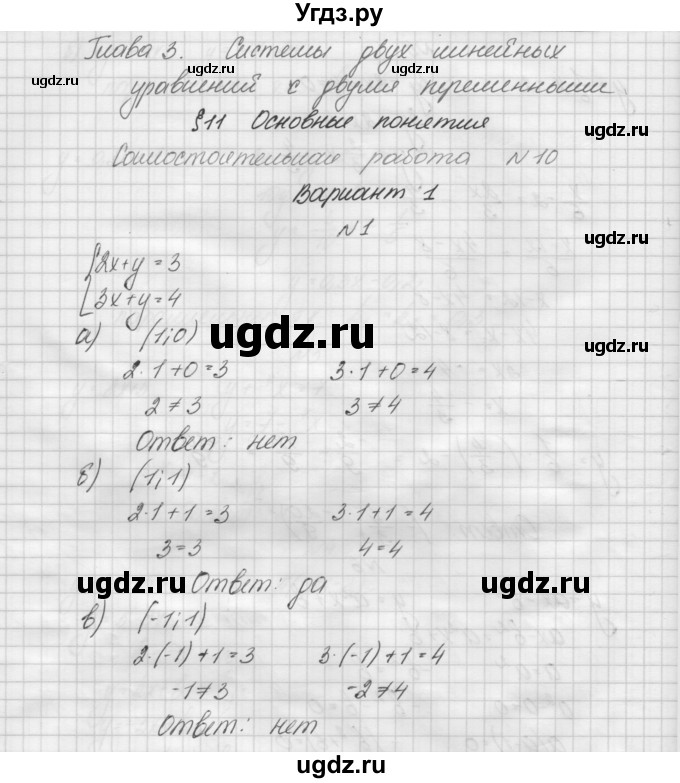 Угдз.ру
Глава 3. Системы двух линейных
уравнений с двумя переменными
§11 Основные понятия
Самостоятельная работа №10
Вариант 1
№1
{2x+y=3
{3x+y=4
а) (1;0)
2·1+0=3 3·1+0=4
2≠3 3≠4
Ответ: нет
б) (1;1)
2·1+1=3 3·1+1=4
3=3 4=4
Ответ: да
в) (-1;1)
2·(-1)+1=3 3·(-1)+1=4
-1≠3 -2≠4
Ответ: нет
ugdz.ru
ugdz.ru
ugdz.ru
ugdz.ru
ugdz.ru
ugdz.ru
ugdz.ru
ugdz.ru
ugdz.ru
ugdz.ru
ugdz.ru
ugdz.ru